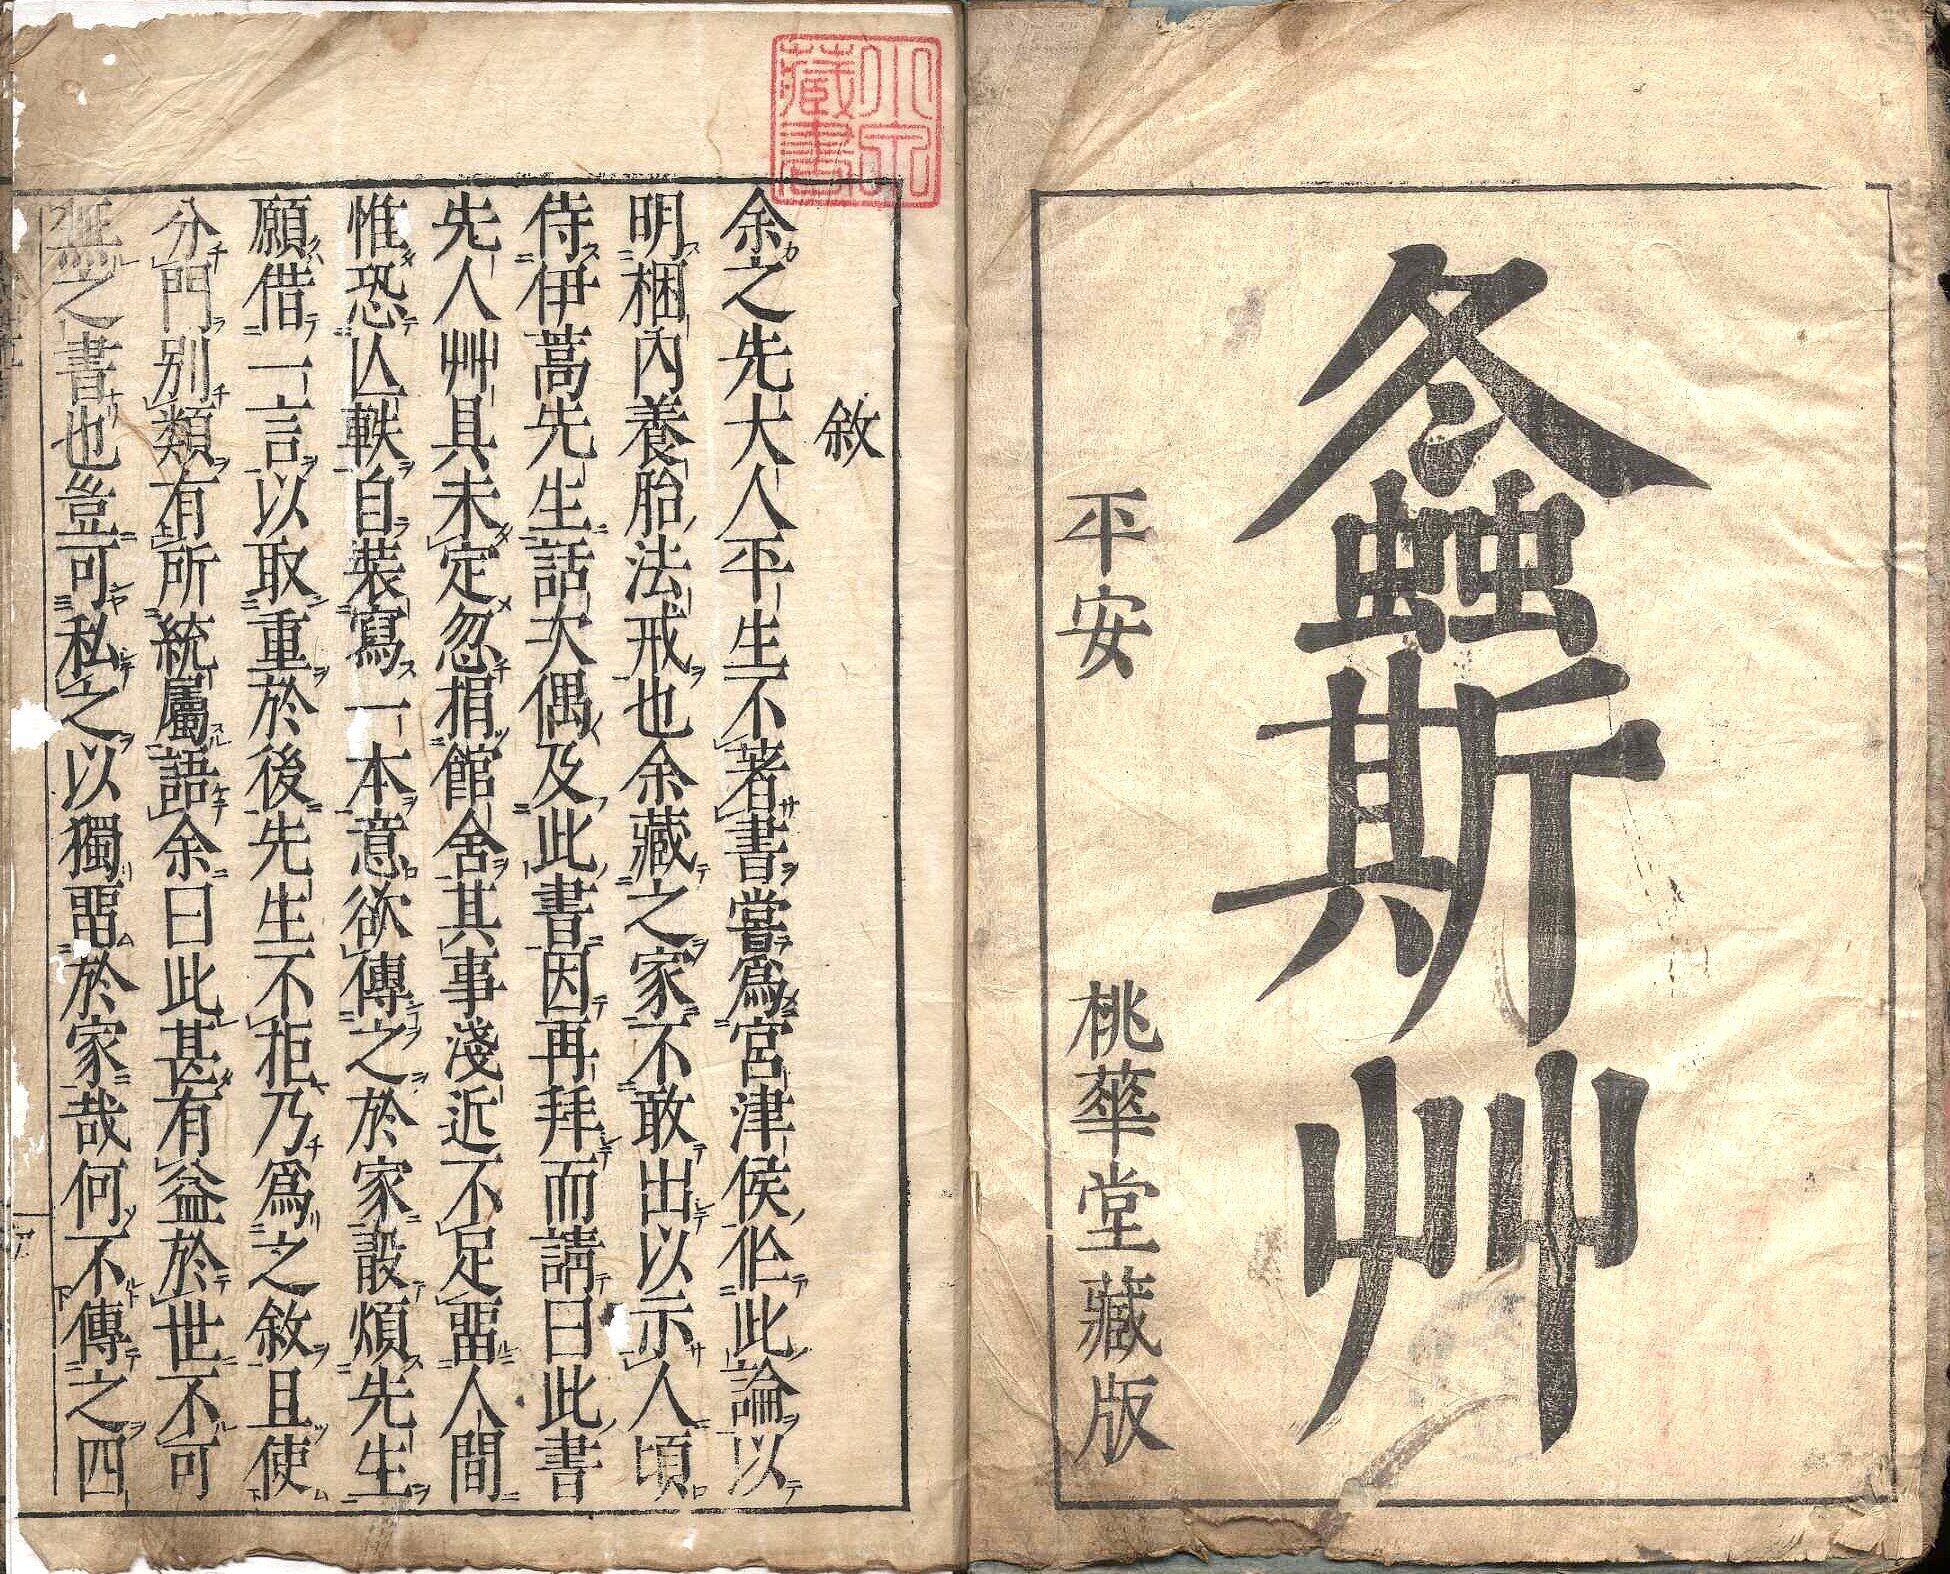 螽斯艸
平安 桃華堂藏版
敘
余之先大人平生不著書嘗爲宮津侯作此論以
明梱內養胎法戒也余藏之家不敢出以示人頃
侍伊蒿先生話次偶及此書因再拜而請曰此書
先人艸具未定忽捐館舍其事淺近不足畱人間
惟恐亾軼自裝寫一本意欲傳之於家敢煩先生
願借一言以取重於後先生不拒乃爲之敘且使
分門別類有所統屬語余曰此甚有益於世不可
無之書也豈可私之以獨畱於家哉何不傳之四
藏書